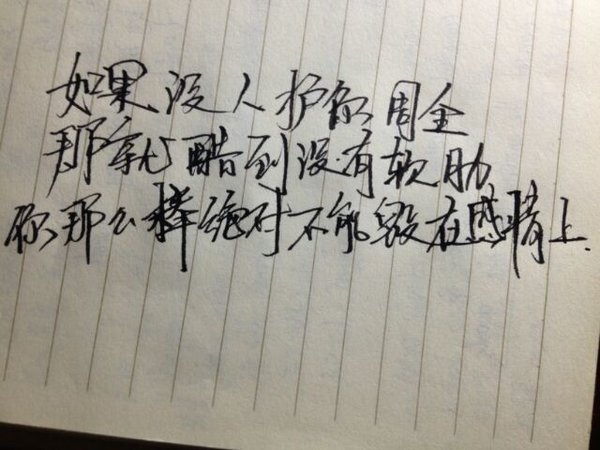 如果没人护你周全
那就酷到没有软肋
你那么棒绝对不能毁在感情上.